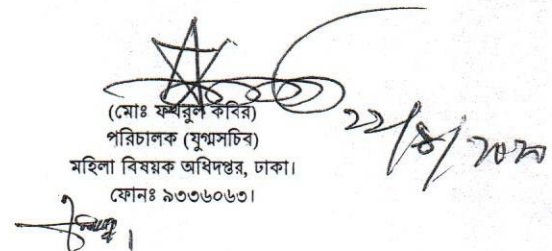 (মোঃ ফখরুল কবির)
পরিচালক (যুগ্মসচিব)
মহিলা বিষয়ক অধিদপ্তর, ঢাকা।
ফোনঃ ৯৩৩৬০৬৩।